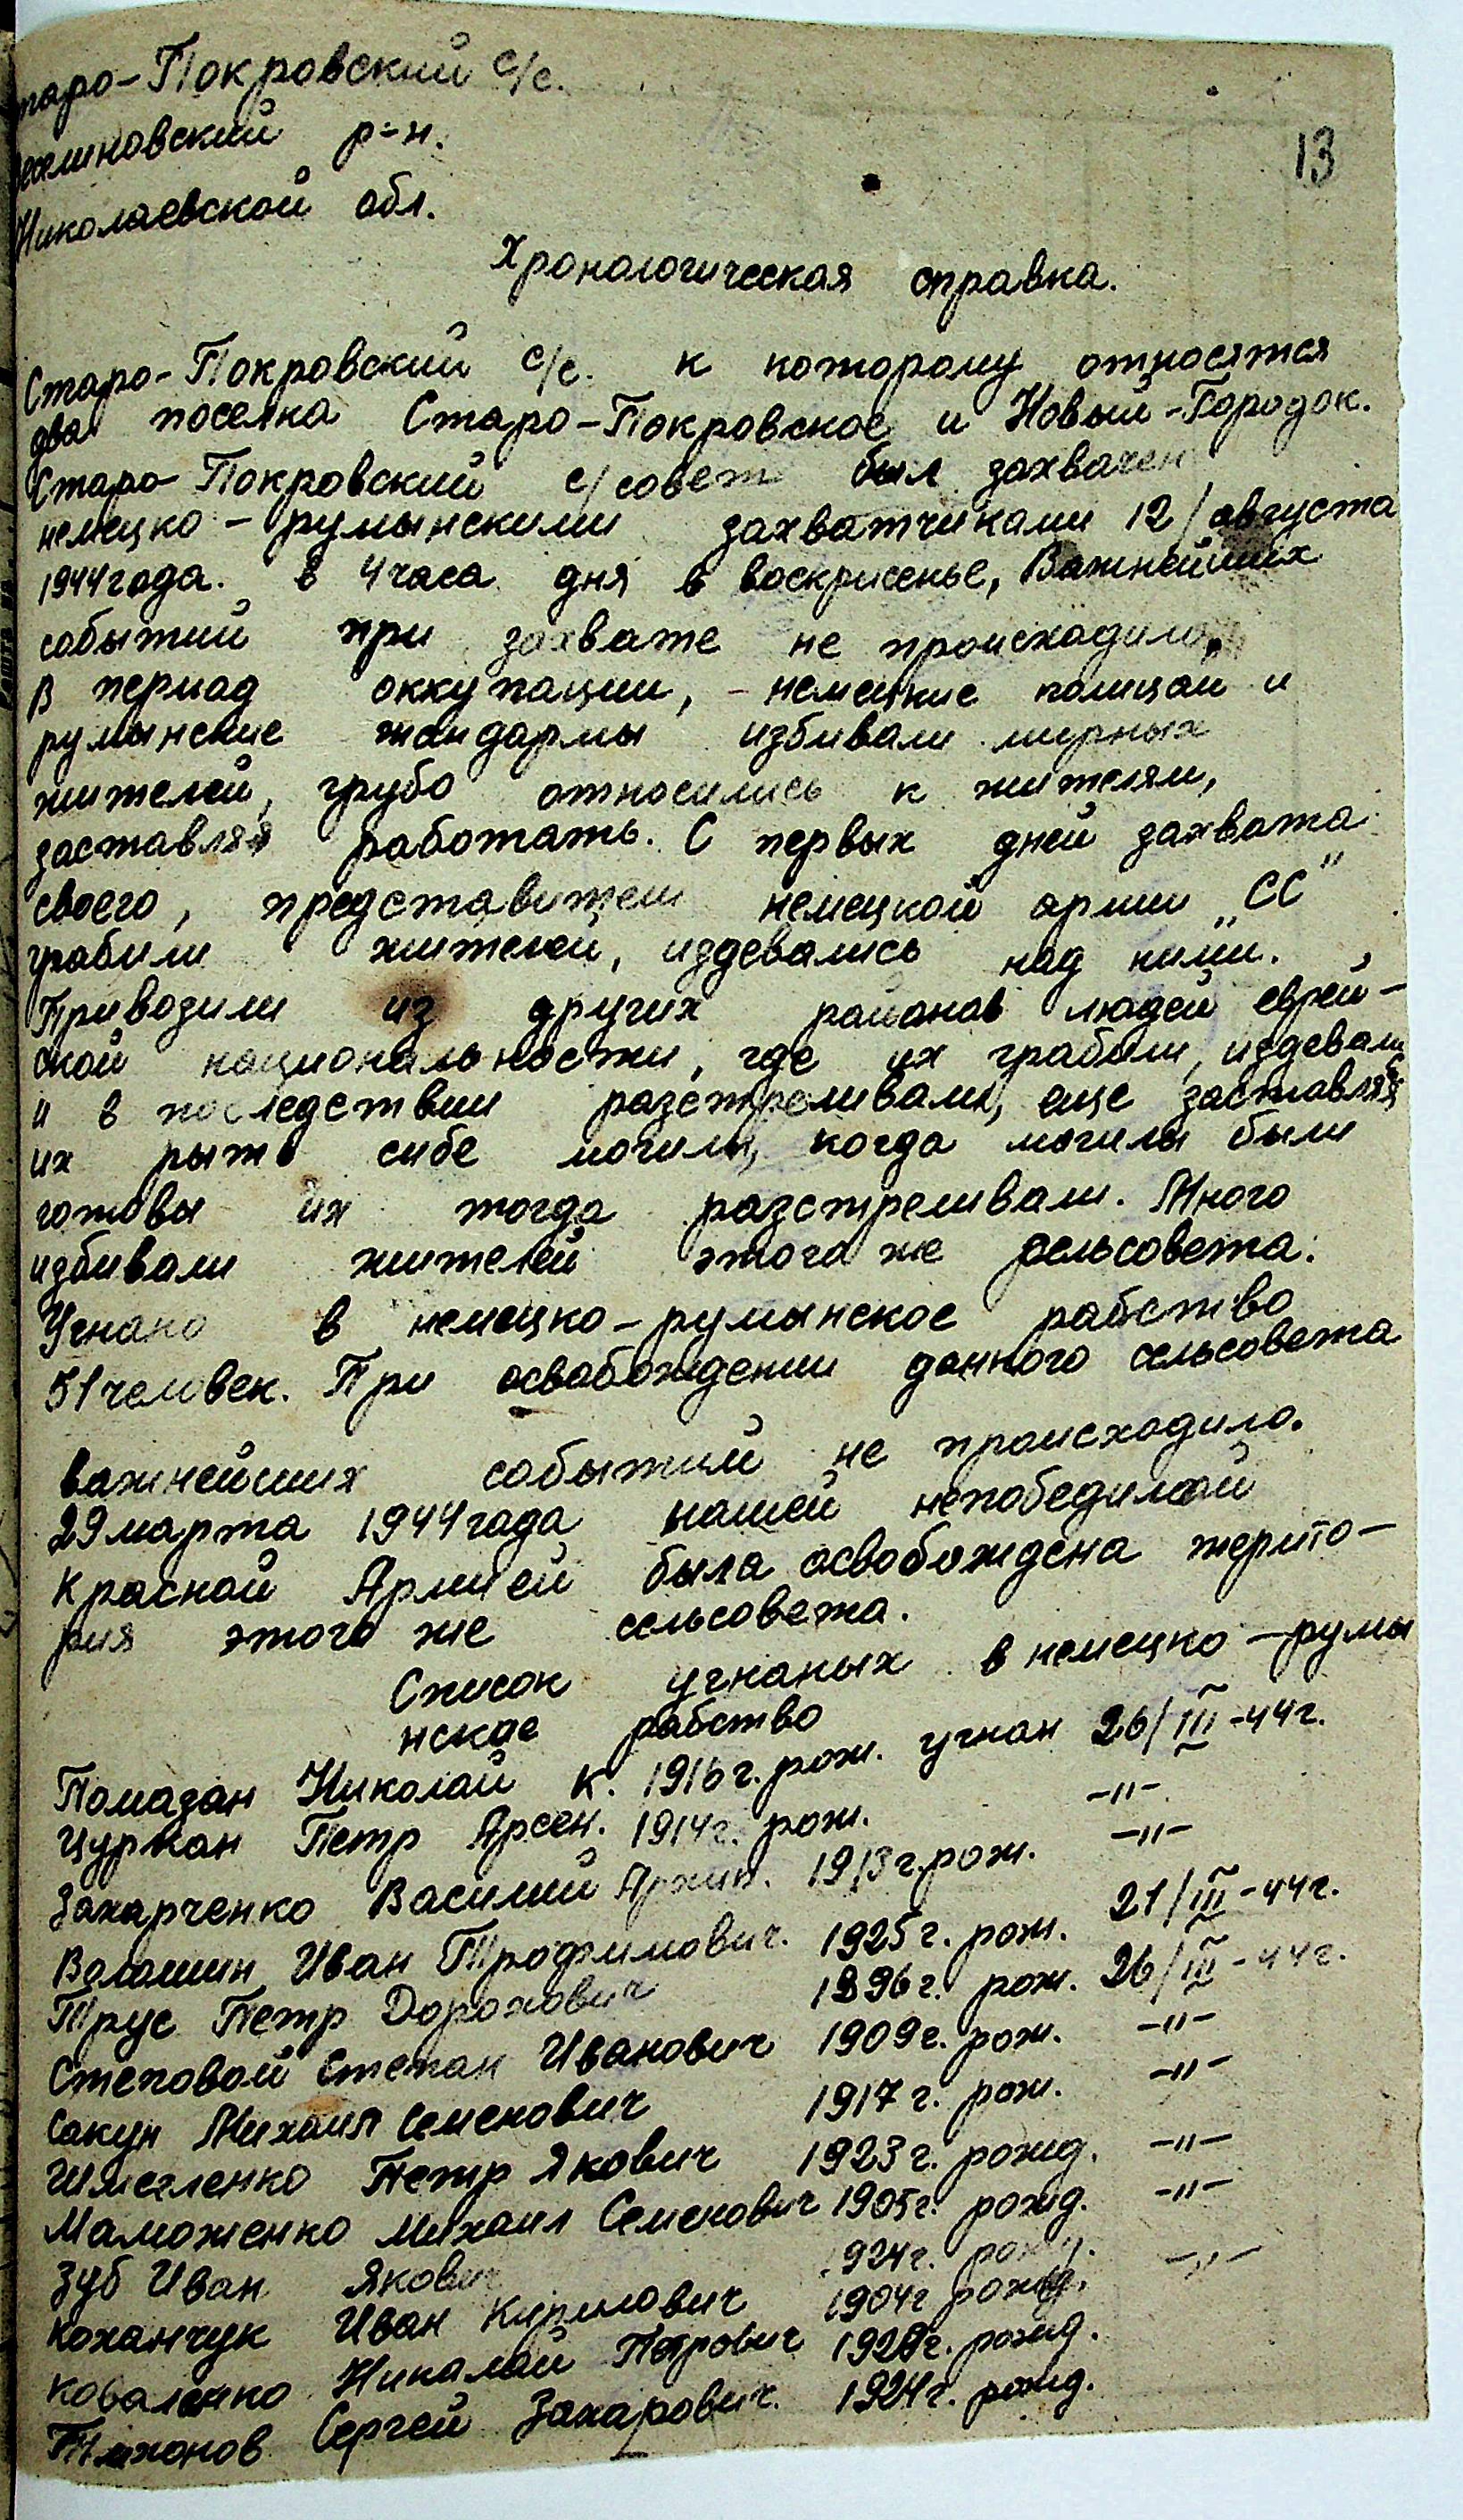 таро-Покровский с/с.
еселиновский р-н.
Николаевской обл.
13
Хронологическая справка.
Старо-Покровский с/с. к которому относятся
два поселка Старо-Покровское и Новый-Городок.
Старо-Покровский с/совет был захвачен
немецко-румынскими захватчиками 12/августа
1944 года. в 4 часа дня в воскрисенье, Важнейших
событий при захвате не происходило.
В период оккупации, - немецкие полицаи и
румынские жандармы избивали мирных
жителей, грубо относились к жителям,
заставляя работать. С первых дней захвата
своего, представители немецкой армии „СС"
грабили жителей, издевались над ними.
Приводили из других районов людей еврей-
ской национальности, где их грабили, издевали
и в последствии разстреливали, еще заставляя
их рыть сибе могилы, когда могилы были
готовы их тогда разстреливали. Много
избивали жителей этого же сельсовета.
Угнано в немецко-румынское рабство
51 человек. При освабождении данного сельсовета
важнейших событий не происходило.
29 марта 1944 года нашей непобедимой
Красной Армией была освобождена терито-
рия этого же сельсовета.
Список угнаных в немецко-румы
нское рабство
Помазан Николай К. 1916 г. рож. угнан 26/III-44г.
Цуркан Петр Арсен. 1914 г. рож. -"-
Захарченко Василий Архип. 1913 г. рож. -"-
Волошин Иван Трофимович. 1925 г. рож. 21/III-44г.
Трус Петр Дорохович 1896 г. рож. 26/III-44г.
Степовой Степан Иванович 1909 г. рож. -"-
Сакун Михаил Семенович 1917 г. рож. -"-
Петр Якович 1923 г. рожд. -"-
Маможенко Михаил Семенович 1905 г. рожд. -"-
Зуб Иван Якович 1924 г. рожд. -"-
Коханчук Иван Кирилович 1904 г. рожд.
Коваленко Николай Петрович 1928 г. рожд.
Тихонов Сергей Захарович. 1924 г. рожд.